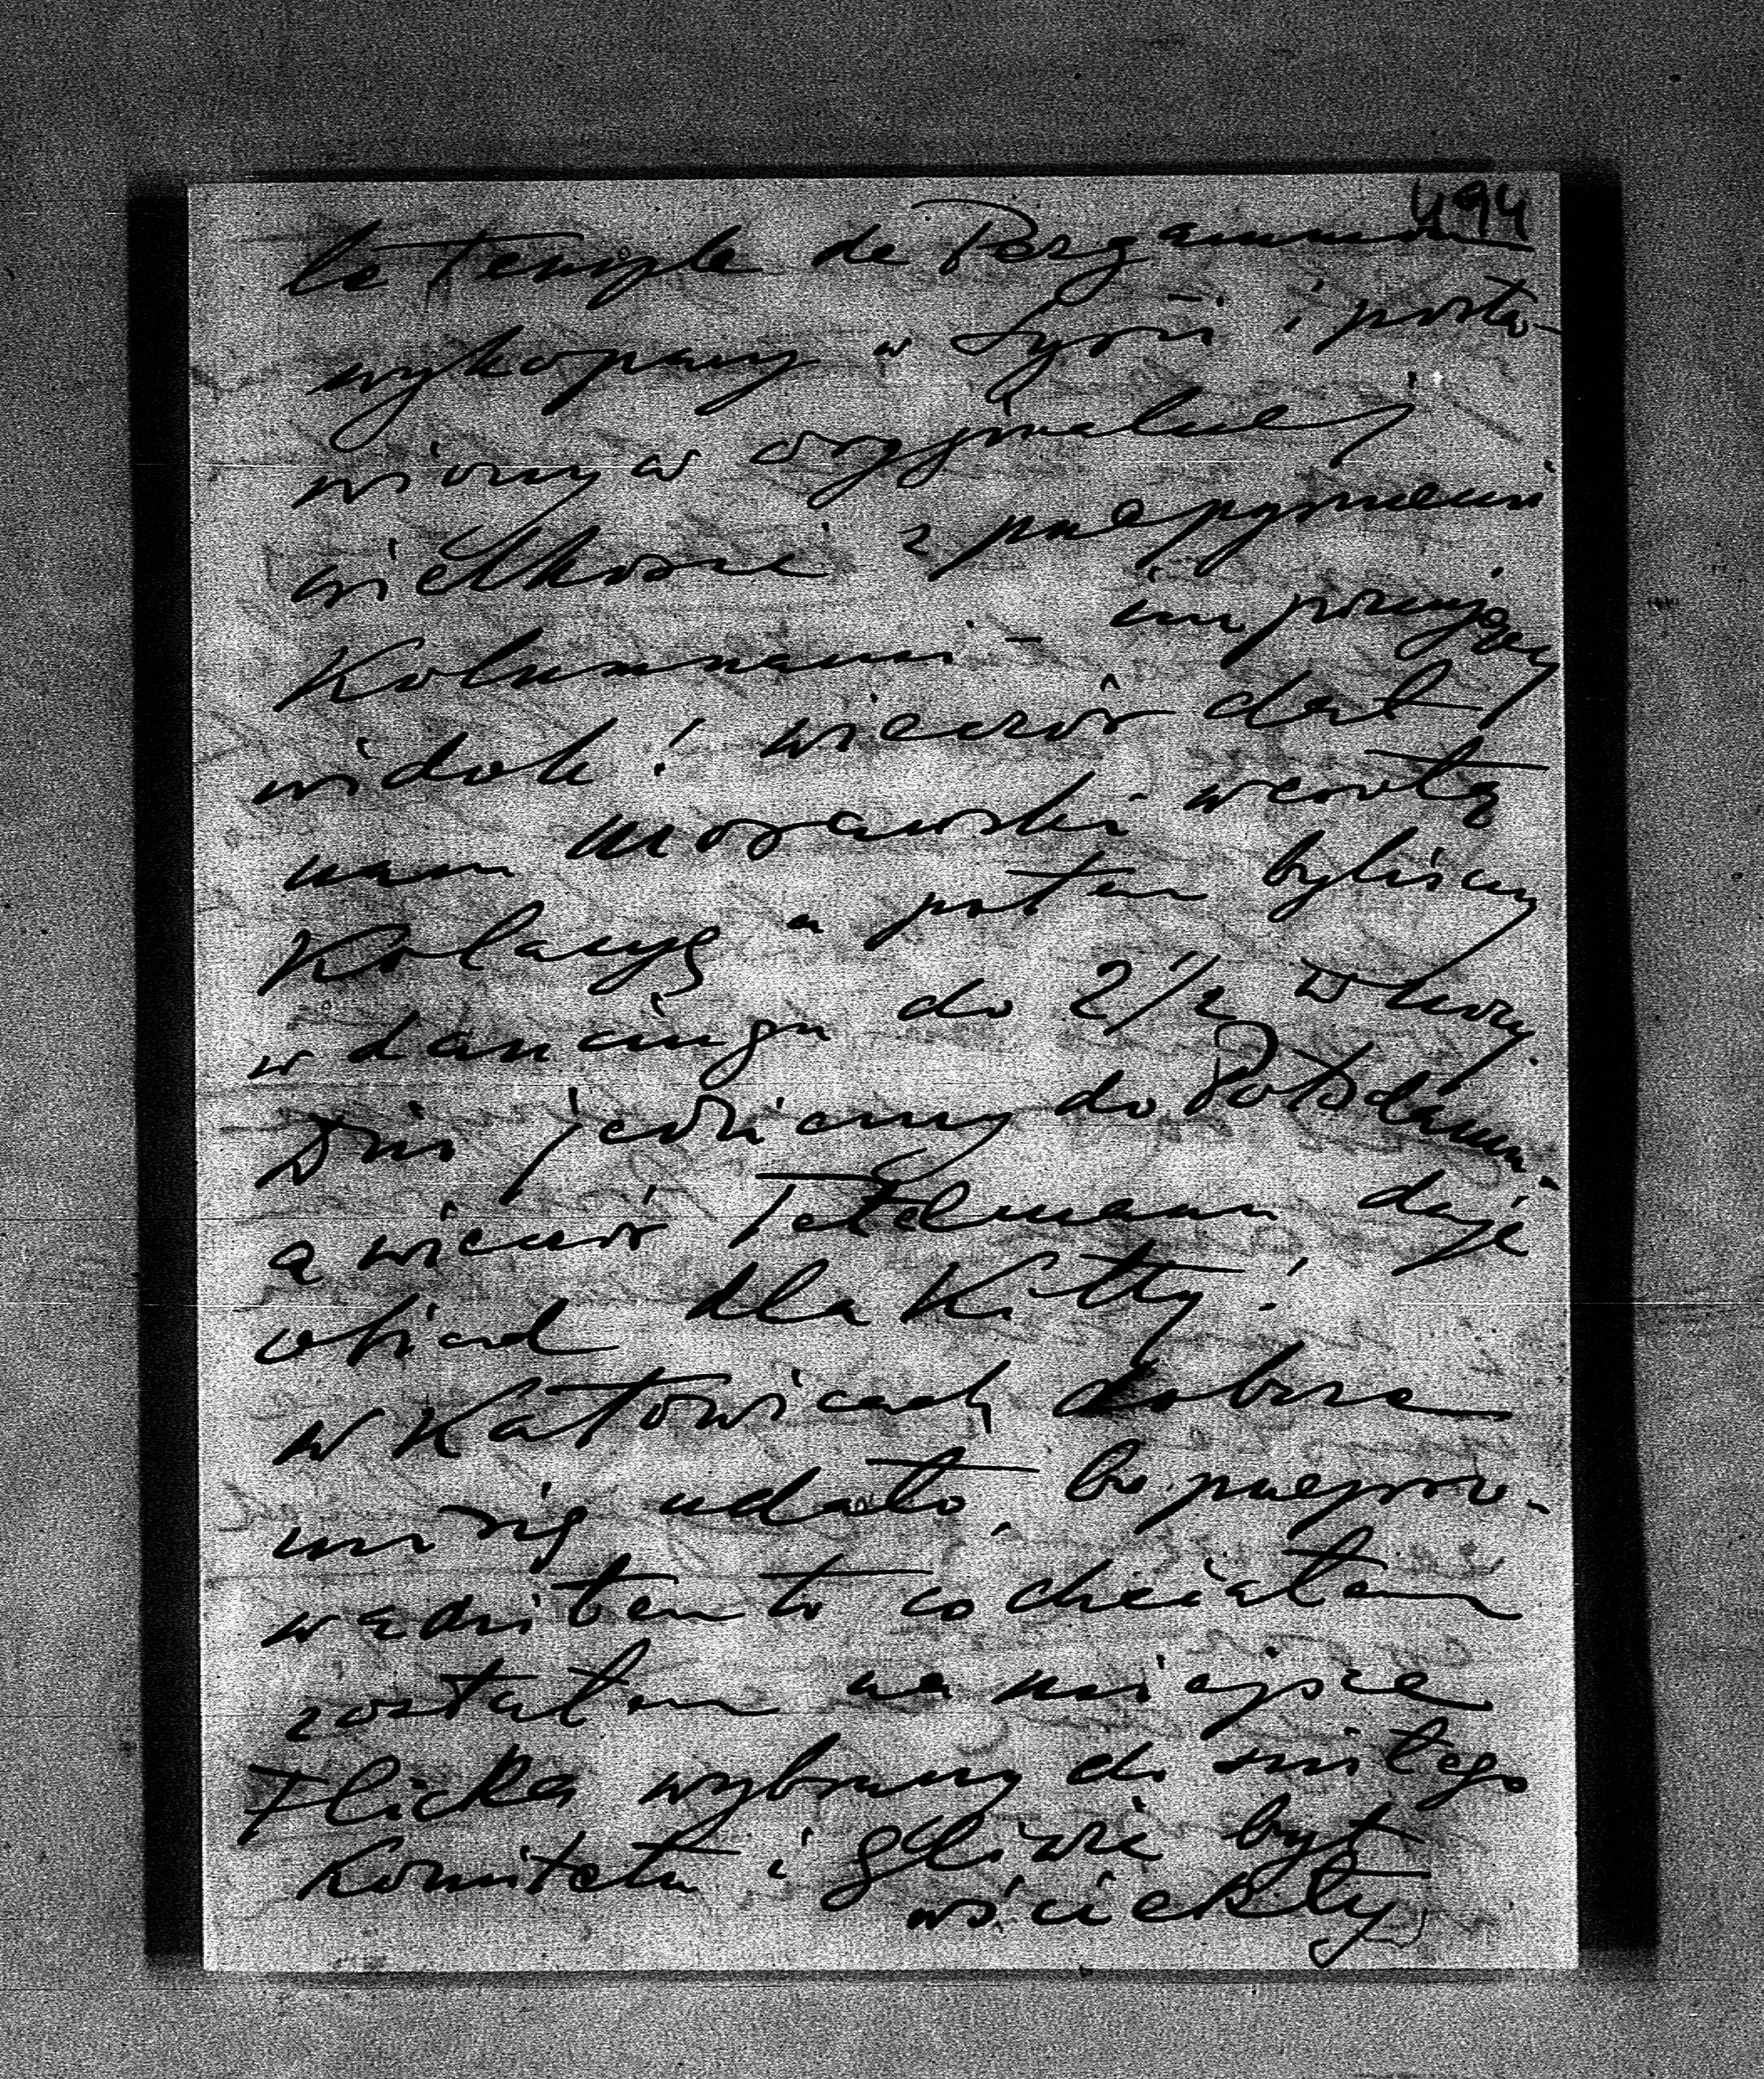 494
le Temple de Pergamum
wykopany w Syrii i posta-
wiony w oryginalnej
wielkości z przepysznemi
Kolumnami – imponujący
widok! wieczór dał
nam Morawski wcortą
Kolacyę a potem byliśmy
w dancingu do 2 1/2 w nocy.
Dziś jedziemy do Potsdamu
a wieczór Tetelmann daje
obiad dla Kitty!
w Katowicach dobrze
mi się udało, bo przepro-
wadziłem to co chciałem
zostałem na miejsce
Flicka wybrany do ścisłego
Komitetu i Gliwic był
wściekły